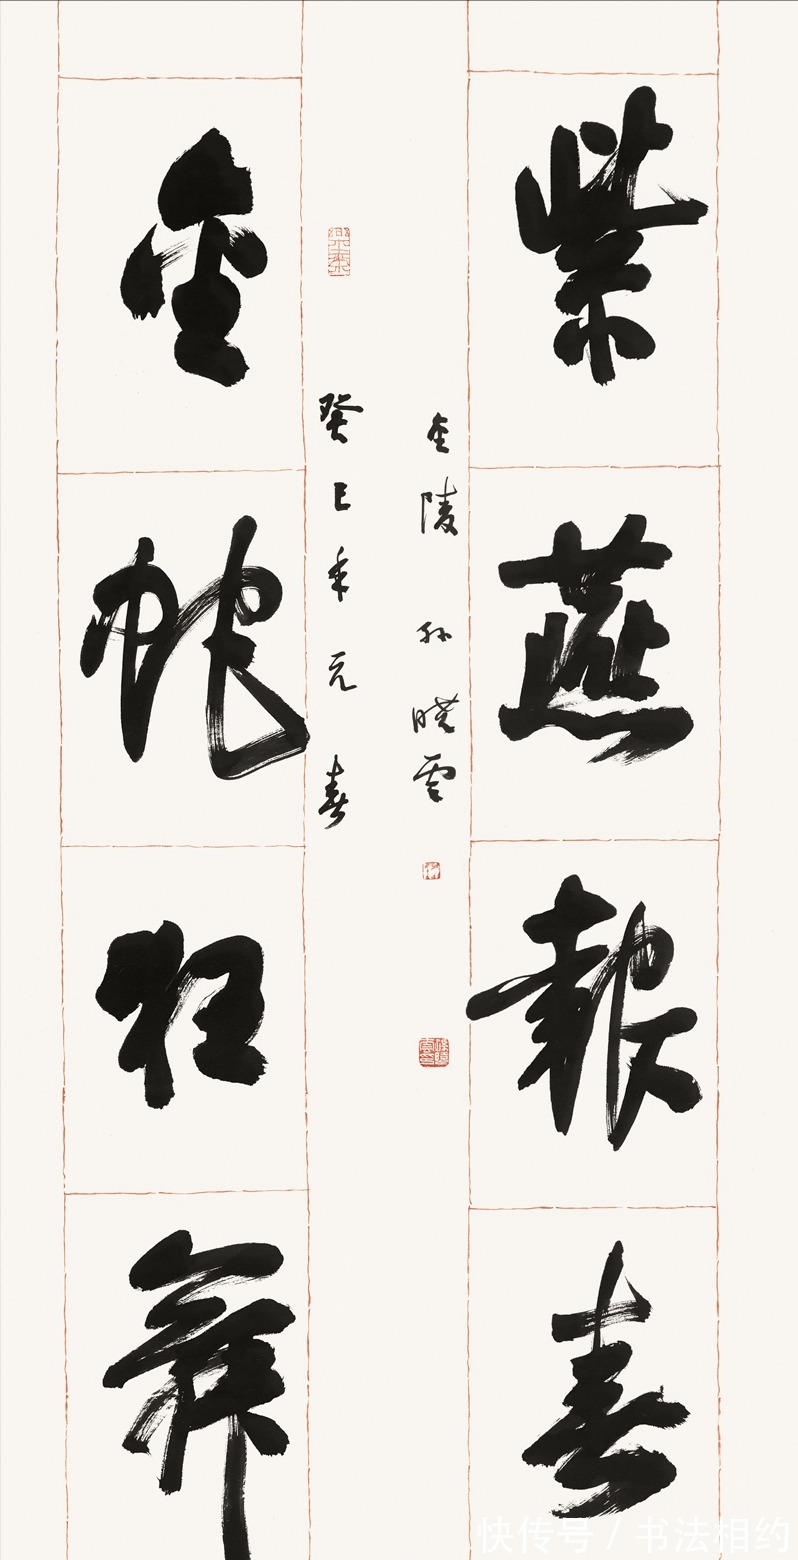 紫燕報春
金陵孫曉雲
癸巳年元春
金蛇狂舞
快传号 / 书法相约